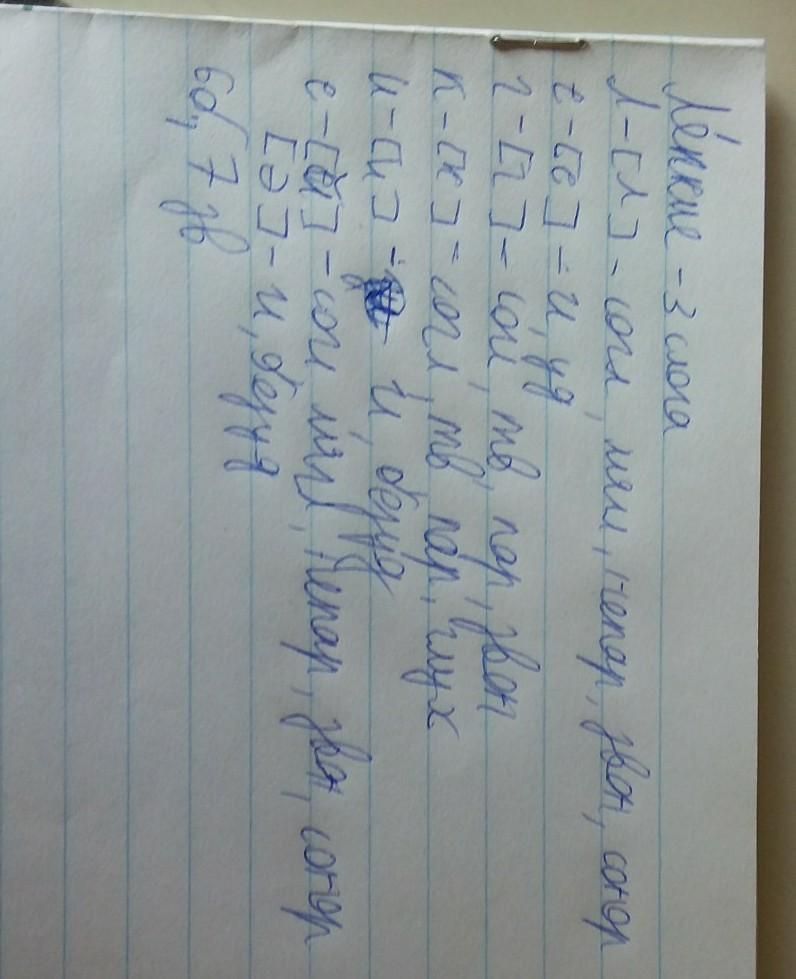 Лёгкие - 3 слога
л - [л] - согл, мяг, непар, звон, сонор
ё - [ё] - и, уд
г - [г] - согл, тв, пар, звон
к - [к] - согл, тв, пар, глух
и - [и] - и, безуд
е - [й] - согл, мяг, непар, звон, сонор
[э] - и, безуд
6б, 7 зв